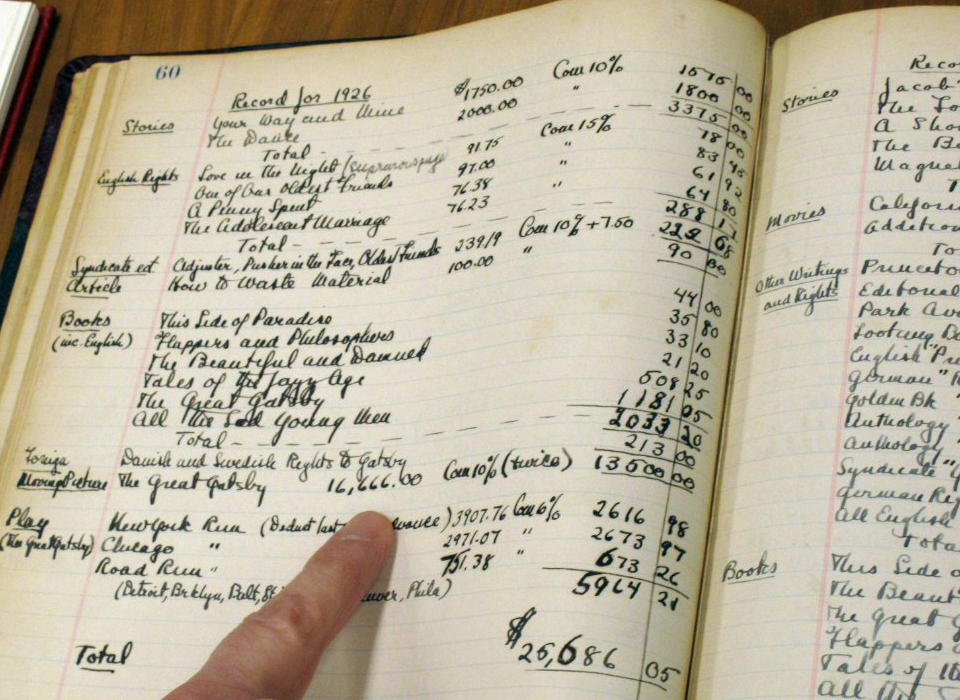 60
Record for 1926
Stories Your Way and Mine $1750.00 Com 10% 1575 00
The Dance 2000.00 " 1800 00
Total 3375 00
English Rights Love in the Night 91.75 Com 15% 78 00
One of Our Oldest Friends 97.00 " 83 45
A Penny Spent 76.38 61 92
The Adolescent Marriage 76.23 " 64 80
Total 288 17
Syndicate ed. Adjuster, Pusher in the Face, Oldest Friends 239.19 Com 10% + 7.50 68
Article How to Waste Material 100.00 " 90 00
Books This Side of Paradise 44 00
(inc. English) Flappers and Philosophers 35 80
The Beautiful and Damned 33 10
Tales of the Jazz Age 21 20
The Great Gatsby 508 25
All the Sad Young Men 1181 05
Total 2033 20
Foreign Danish and Swedish Rights to Gatsby 213 00
Moving Picture The Great Gatsby 16,666.00 Com 10% (twice) 13500 00
Play New York Run (Deduct last) 3907.76 Com 6% 2616 98
(The Great Gatsby) Chicago " 2971.07 " 2673 97
Road Run " 751.38 " 673 26
(Detroit, Brklyn, Balt, Phila) 5964 21
Total $25,686 05
Stories
The
A
The
Movies
Other Writings
and Rights
English
German
Golden Bk
Anthology
Anthology
Syndicate
German
All English
Books This Side
The
The Great
Flappers
Tales of
All the